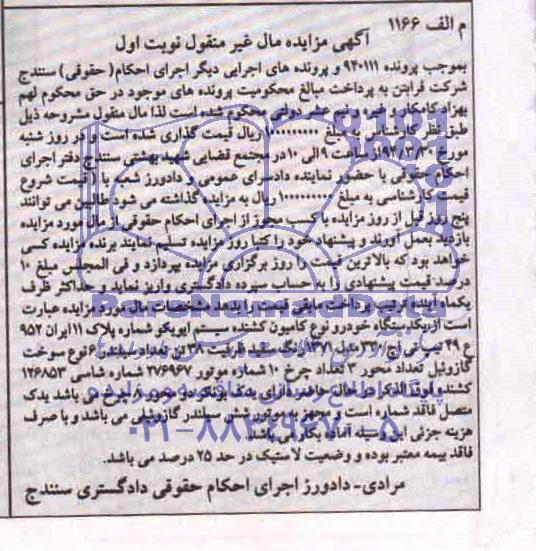 م الف ۱۱۶۶
آگهی مزایده مال غیر منقول نوبت اول
بموجب پرونده ۹۴۰۱۱۱ و پرونده های اجرایی دیگر اجرای احکام (حقوقی) سنندج
شرکت فرابتن به پرداخت مبالغ محکومیت پرونده های موجود در حق محکوم لهم
بهزاد کامکار و غیره و نیم عشر دولتی محکوم شده است لذا مال منقول مشروحه ذیل
طبق نظر کارشناسی به مبلغ ریال قیمت گذاری شده است و در روز شنبه
مورخ از ساعت ۹ الی ۱۰ در مجتمع قضایی شهید بهشتی سنندج دفتر اجرای
احکام حقوقی با حضور نماینده دادسرای عمومی و دادورز شعبه با (قیمت شروع
قیمت کارشناسی به مبلغ ریال به مزایده گذاشته می شود طالبین می توانند
پنج روز قبل از روز مزایده با کسب مجوز از اجرای احکام حقوقی از مال مورد مزایده
بازدید بعمل آورند و پیشنهاد خود را کتبا روز مزایده تسلیم نمایند برنده مزایده کسی
خواهد بود که بالاترین قیمت را روز برگزاری مزایده بپردازد و فی المجلس مبلغ ۱۰
درصد قیمت پیشنهادی را به حساب سپرده دادگستری واریز نماید و حداکثر ظرف
یکماه آینده ترتیب پرداخت مابقی قیمت را بدهد مشخصات مال مورد مزایده عبارت
است از یکدستگاه خودرو نوع کامیون کشنده سیستم ایویکو شماره پلاک ۱۱ ایران ۹۵۲
ع ۴۹ تیپ تی اچ ۳۳۰ مدل ۱۳۷۱ رنگ سفید ظرفیت ۳۸ تن تعداد سیلندر ۶ نوع سوخت
گازوئیل تعداد محور ۳ تعداد چرخ ۱۰ شماره موتور ۲۷۶۹۶۷ شماره شاسی ۱۲۶۸۵۳
کشنده فوق الذکر در حال حاضر دارای یدک بونکر دو محور ۸ چرخ می باشد یدک
متصل فاقد شماره است و مجهز به موتور شش سیلندر گازوئیلی می باشد و با صرف
هزینه جزئی این وسیله آماده بکار می باشد.
فاقد بیمه معتبر بوده و وضعیت لاستیک در حد ۲۵ درصد می باشد.
مرادی- دادورز اجرای احکام حقوقی دادگستری سنندج
ParsNamadData
۰۲۱-۸۸۳۴۹۶۷۰-۵